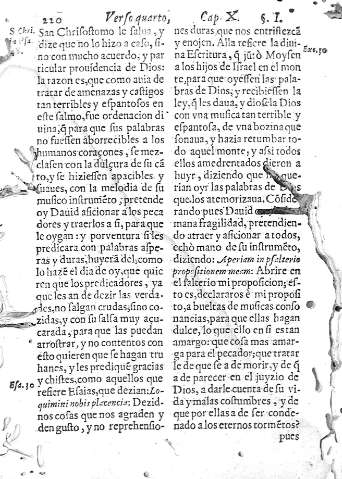 220 Verso quarto, Cap. X. §. I.
San Chrisostomo le salua, y
dize que no lo hizo a caso, si-
no con mucho acuerdo, y par
ticular prouidencia de Dios:
la razon es, que como auia de
tratar de amenazas y castigos
tan terribles y espantosos en
este salmo, fue ordenacion di
uina, q̃ para que sus palabras
no fuessen aborrecibles a los
humanos coraçones, se mez-
clasen con la dulçura de su cã
to, y se hiziessen apacibles y
suaues, con la melodia de su
musico instrumẽto; pretende
oy Dauid aficionar a los peca
dores y traerlos a si, para que
le oygan: y por ventura si les
predicara con palabras aspe-
ras y duras, huyerã del, como
lo hazẽ el dia de oy, que quie
ren que los predicadores, ya
que les an de dezir las verda-
des, no salgan crudas, sino co-
zidas, y con salsa muy açu-
carada, para que las puedan
arrostrar, y no contentos con
esto quieren que se hagan tru
hanes, y les prediquẽ gracias
y chistes, como aquellos que
refiere Esaias, que dezian: Lo-
quimini nobis placentia: Dezid
nos cosas que nos agraden y
den gusto, y no reprehensio-
Esa. 30
nes duras, que nos entristezcã
y enojen. Alla refiere la diui-
na Escritura, q̃ jũtò Moysen
a los hijos de Israel en el mon
te, para que oyessen las pala-
bras de Dios, y recibiessen la
ley, q̃ les daua, y diosela Dios
con vna musica tan terrible y
espantosa, de vna bozina que
sonaua, y hazia retumbar to-
do aquel monte, y assi todos
ellos amedrentados dieron a
huyr, diziendo que no que-
rian oyr las palabras de Dios
que los atemorizaua. Cõside
rando pues Dauid
mana fragilidad, pretendien-
do atraer y aficionar a todos,
echò mano de su instrumẽto,
diziendo: Aperiam in psalterio
propositionem meam: Abrire en
el salterio mi proposicion; es-
to es, declararos è mi proposi
to, a bueltas de musicas conso
nancias, para que ellas hagan
dulce, lo que ello en si es tan
amargo: que cosa mas amar-
ga para el pecador, que tratar
le de que se a de morir, y de q̃
a de parecer en el juyzio de
Dios, a darle cuenta de su vi-
da y malas costumbres, y de
que por ellas a de ser conde-
nado a los eternos tormẽtos?
pues
Exo. 20